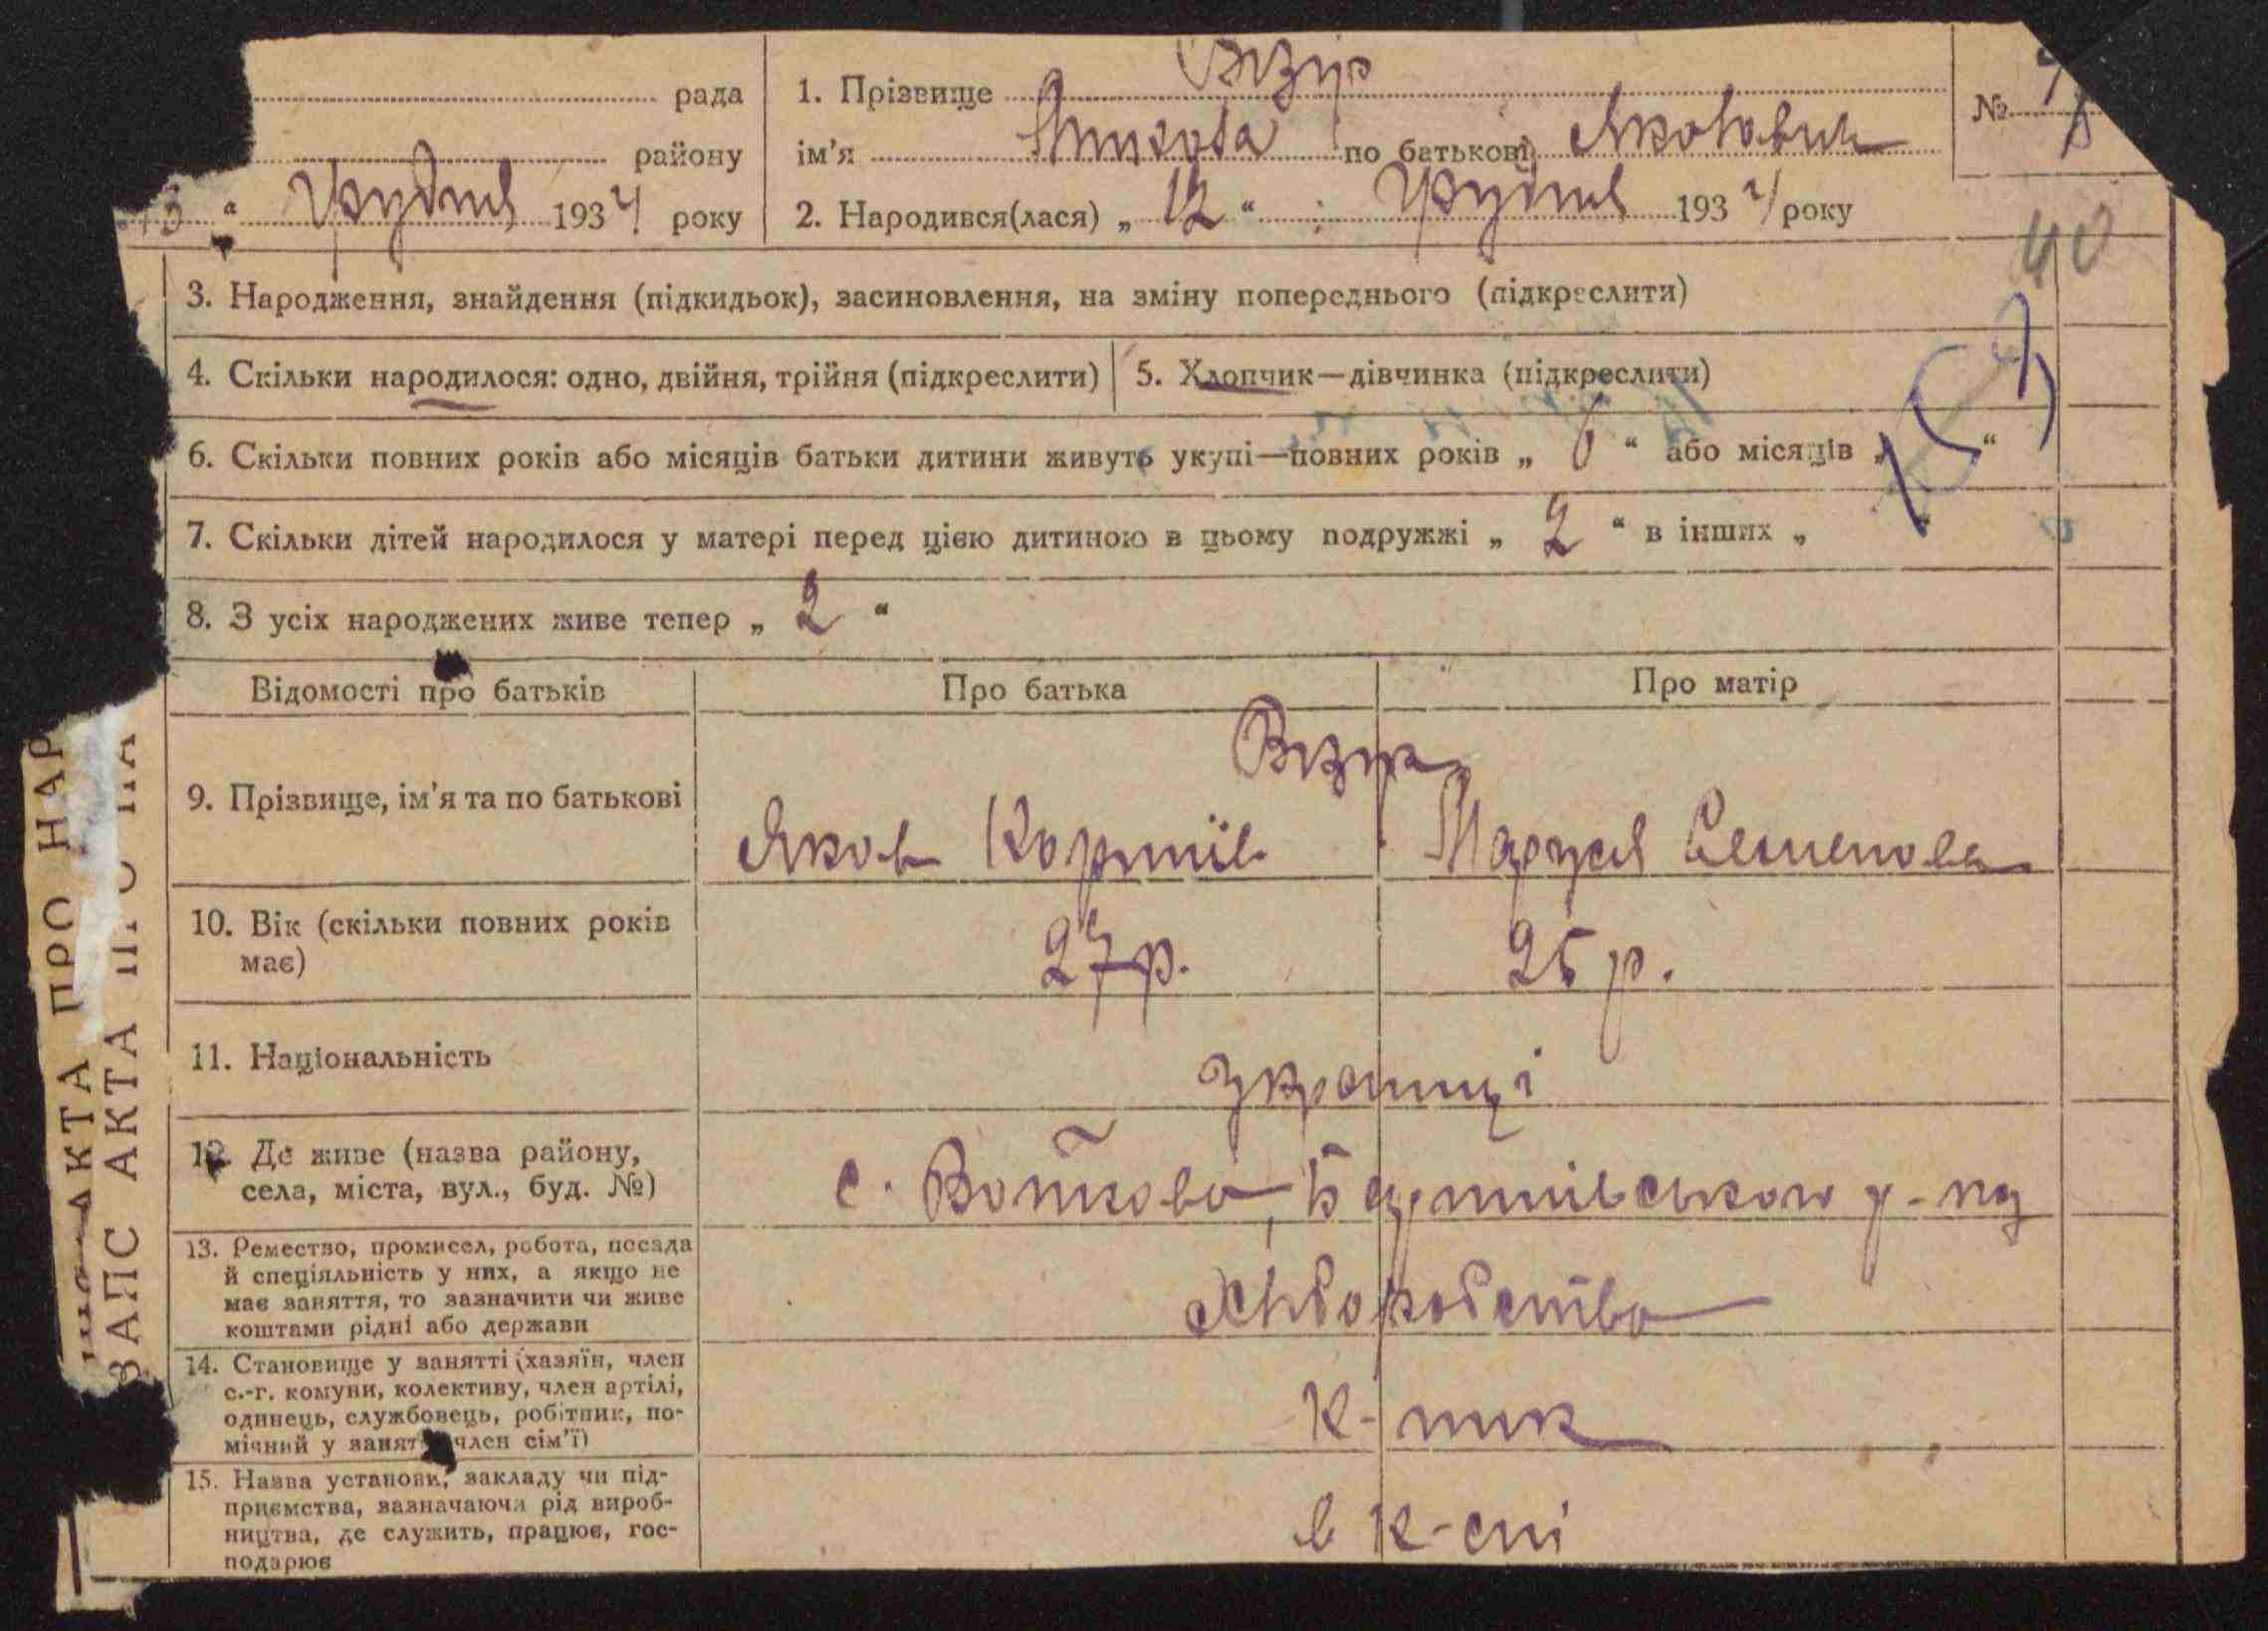 рада
району
13 " Грудня 1934 року
1. Прізвище Візір
ім'я Микола по батькові Яковович
2. Народився(лася) „ 12 " Грудня 1934 року
№
40
3. Народження, знайдення (підкидьок), засиновлення, на зміну попереднього (підкреслити)
4. Скільки народилося: одно, двійня, трійня (підкреслити)
5. Хлопчик—дівчинка (підкреслити)
6. Скільки повних років або місяців батьки дитини живуть укупі—повних років „ 6 " або місяців „ "
7. Скільки дітей народилося у матері перед цією дитиною в цьому подружжі „ 2 " в інших „
8. З усіх народжених живе тепер „ 2 "
Відомості про батьків
Про батька
Про матір
9. Прізвище, ім'я та по батькові
Візір
Яков
Маруся Семенова
10. Вік (скільки повних років
має)
27 р.
25 р.
11. Національність
українці
12. Де живе (назва району,
села, міста, вул., буд. №)
с. р-ну
13. Ремество, промисел, робота, посада
й спеціяльність у них, а якщо не
має заняття, то зазначити чи живе
коштами рідні або держави
хліборобство
14. Становище у занятті (хазяїн, член
с.-г. комуни, колективу, член артілі,
одинець, службовець, робітник, по-
мічний у занятті член сім'ї)
к-ник
15. Назва установи, закладу чи під-
приємства, зазначаючи рід вироб-
ництва, де служить, працює, гос-
подарює
в к-спі
АКТА ПРО НАР
ЗАПС АКТА ПРО НА